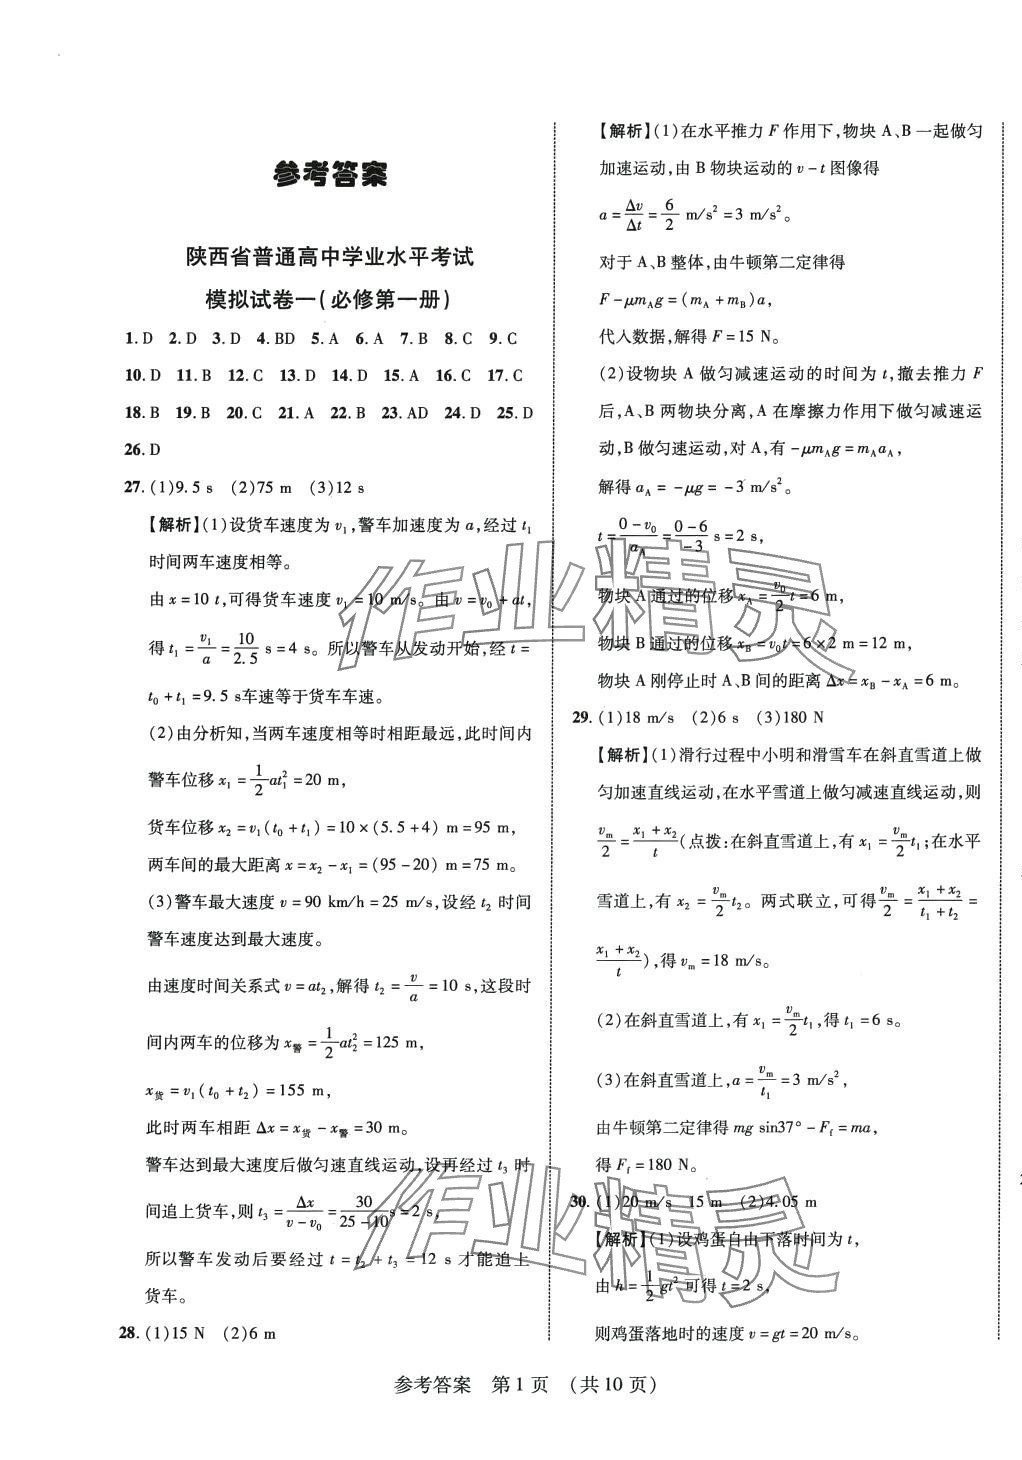 参考答案
陕西省普通高中学业水平考试
模拟试卷一(必修第一册)
1. D 2. D 3. D 4. BD 5. A 6. A 7. B 8. C 9. C
10. D 11. B 12. C 13. D 14. D 15. A 16. C 17. C
18. B 19. B 20. C 21. A 22. B 23. AD 24. D 25. D
26. D
27. (1)9.5 s (2)75 m (3)12 s
【解析】(1)设货车速度为 v₁,警车加速度为 a,经过 t₁
时间两车速度相等。
由 x=10 t,可得货车速度 v₁=10 m/s。由 v=v₀+at,
得 t₁=v₁/a=10/2.5 s=4 s。所以警车从发动开始,经 t=
t₀+t₁=9.5 s车速等于货车车速。
(2)由分析知,当两车速度相等时相距最远,此时间内
警车位移 x₁=1/2at₁²=20 m,
货车位移 x₂=v₁(t₀+t₁)=10×(5.5+4) m=95 m,
两车间的最大距离 x=x₂-x₁=(95-20) m=75 m。
(3)警车最大速度 v=90 km/h=25 m/s,设经 t₂ 时间
警车速度达到最大速度。
由速度时间关系式 v=at₂,解得 t₂=v/a=10 s,这段时
间内两车的位移为 x警=1/2at₂²=125 m,
x货=v₁(t₀+t₂)=155 m,
此时两车相距 Δx=x货-x警=30 m。
警车达到最大速度后做匀速直线运动,设再经过 t₃ 时
间追上货车,则 t₃=Δx/(v-v₀)=30/(25-10)s=2 s,
所以警车发动后要经过 t=t₂+t₃=12 s 才能追上
货车。
28. (1)15 N (2)6 m
【解析】(1)在水平推力 F 作用下,物块 A、B 一起做匀
加速运动,由 B 物块运动的 v-t 图像得
a=Δv/Δt=6/2 m/s²=3 m/s²。
对于 A、B 整体,由牛顿第二定律得
F-μm_A g=(m_A+m_B)a,
代人数据,解得 F=15 N。
(2)设物块 A 做匀减速运动的时间为 t,撤去推力 F
后,A、B 两物块分离,A 在摩擦力作用下做匀减速运
动,B 做匀速运动,对 A,有 -μm_A g=m_A a_A,
解得 a_A=-μg=-3 m/s²。
t=(0-v₀)/a_A=(0-6)/(-3) s=2 s,
物块 A 通过的位移 x_A=v₀/2t=6 m,
物块 B 通过的位移 x_B=v₀t=6×2 m=12 m,
物块 A 刚停止时 A、B 间的距离 Δx=x_B-x_A=6 m。
29. (1)18 m/s (2)6 s (3)180 N
【解析】(1)滑行过程中小明和滑雪车在斜直雪道上做
匀加速直线运动,在水平雪道上做匀减速直线运动,则
v_m/2=(x₁+x₂)/t(点拨:在斜直雪道上,有 x₁=v_m/2t₁;在水平
雪道上,有 x₂=v_m/2t₂。两式联立,可得v_m/2=(x₁+x₂)/(t₁+t₂)=
(x₁+x₂)/t),得 v_m=18 m/s。
(2)在斜直雪道上,有 x₁=v_m/2t₁,得 t₁=6 s。
(3)在斜直雪道上,a=v_m/t₁=3 m/s²,
由牛顿第二定律得 mg sin37°-F_f=ma,
得 F_f=180 N。
30. (1)20 m/s 15 m (2)4.05 m
【解析】(1)设鸡蛋自由下落时间为 t,
由 h=1/2gt² 可得 t=2 s,
则鸡蛋落地时的速度 v=gt=20 m/s。
参考答案 第 1 页 (共 10 页)
作业精灵
作业精灵